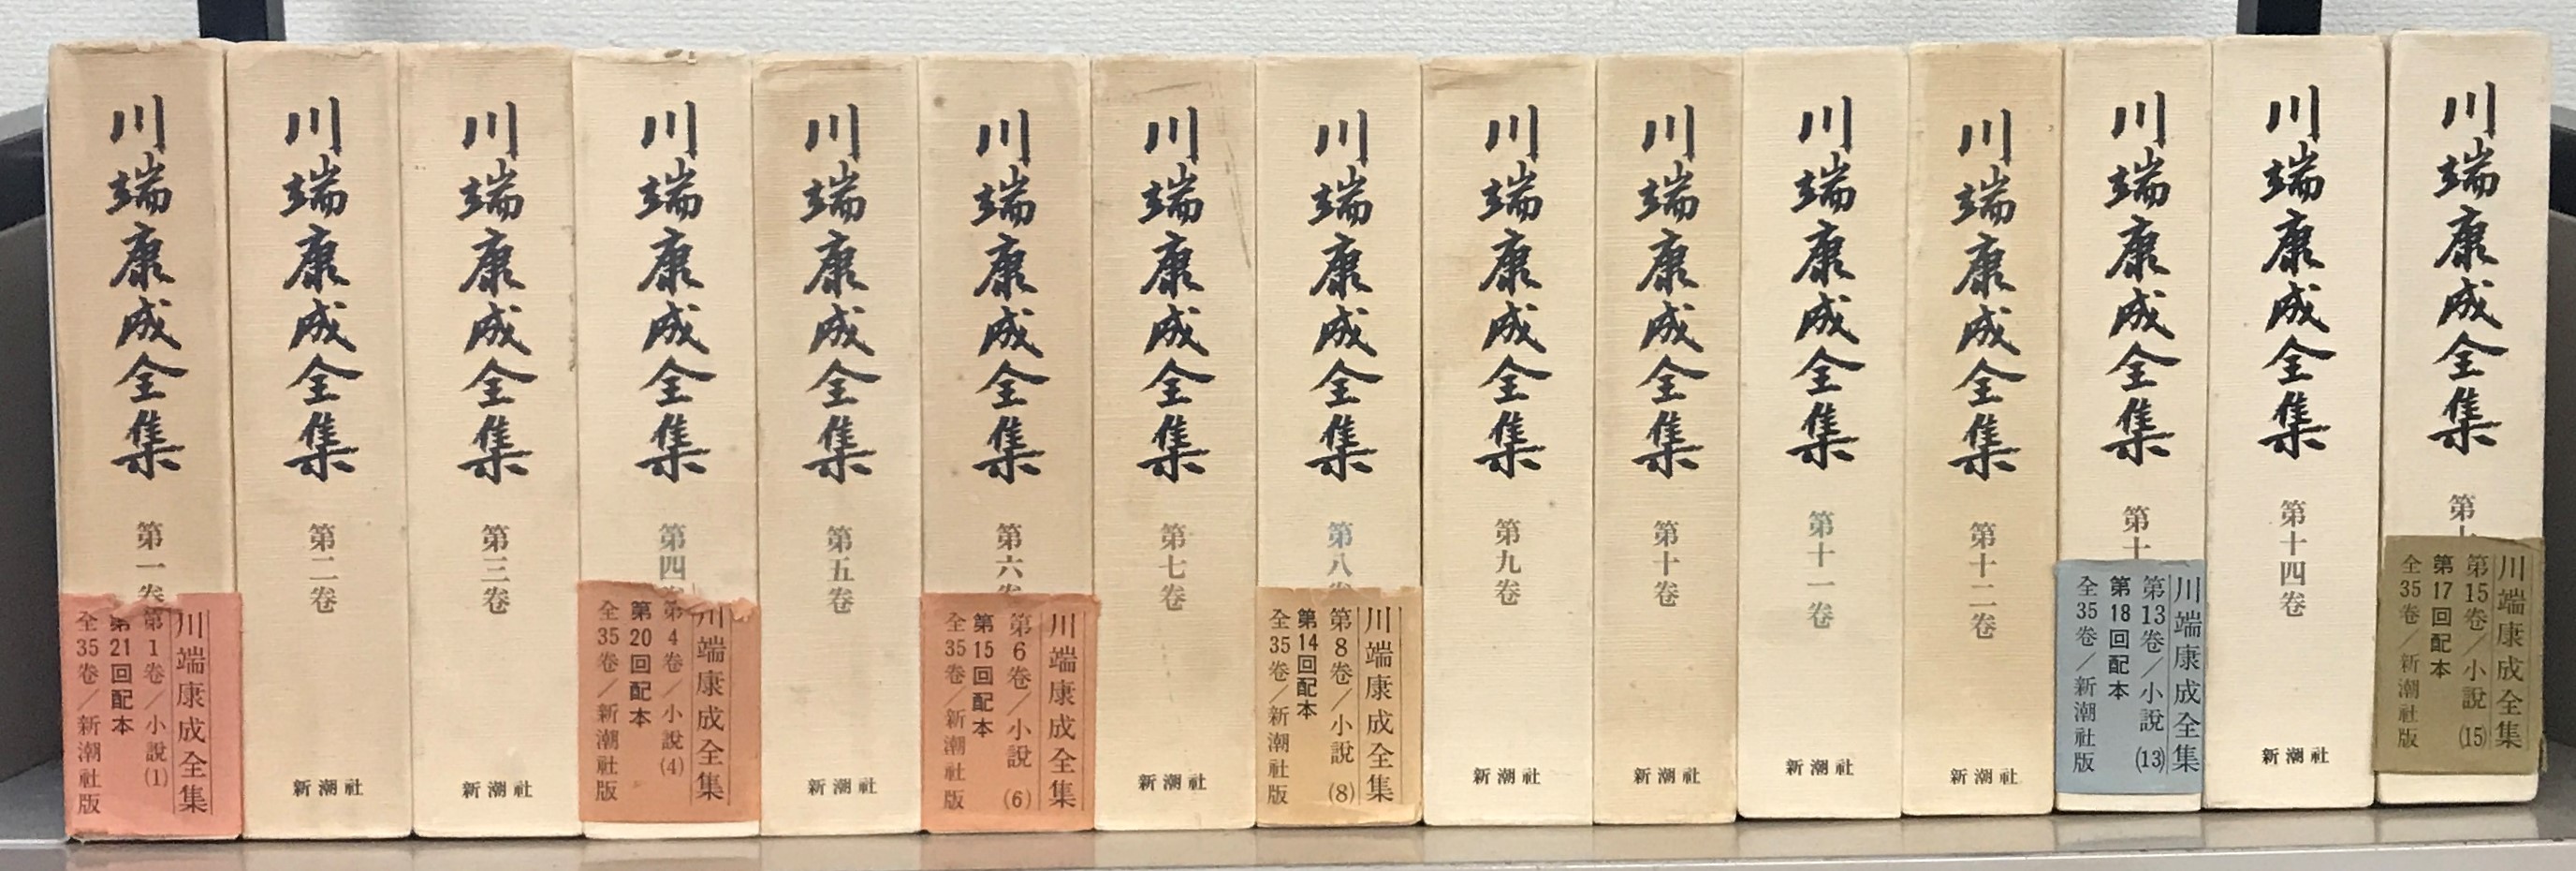 川端康成全集
第一巻
川端康成全集
第1巻/小説(1)
第21回配本
全35巻/新潮社版
川端康成全集
第二巻
新潮社
川端康成全集
第三巻
新潮社
川端康成全集
第四
川端康成全集
第4巻/小説(4)
第20回配本
全35巻/新潮社版
川端康成全集
第五巻
新潮社
川端康成全集
第六
川端康成全集
第6巻/小説(6)
第15回配本
全35巻/新潮社版
川端康成全集
第七巻
新潮社
川端康成全集
第八巻
川端康成全集
第8巻/小説(8)
第14回配本
全35巻/新潮社版
川端康成全集
第九巻
新潮社
川端康成全集
第十巻
新潮社
川端康成全集
第十一巻
新潮社
川端康成全集
第十二巻
新潮社
川端康成全集
第十
川端康成全集
第13巻/小説(13)
第18回配本
全35巻/新潮社版
川端康成全集
第十四巻
新潮社
川端康成全集
第十
川端康成全集
第15巻/小説(15)
第17回配本
全35巻/新潮社版